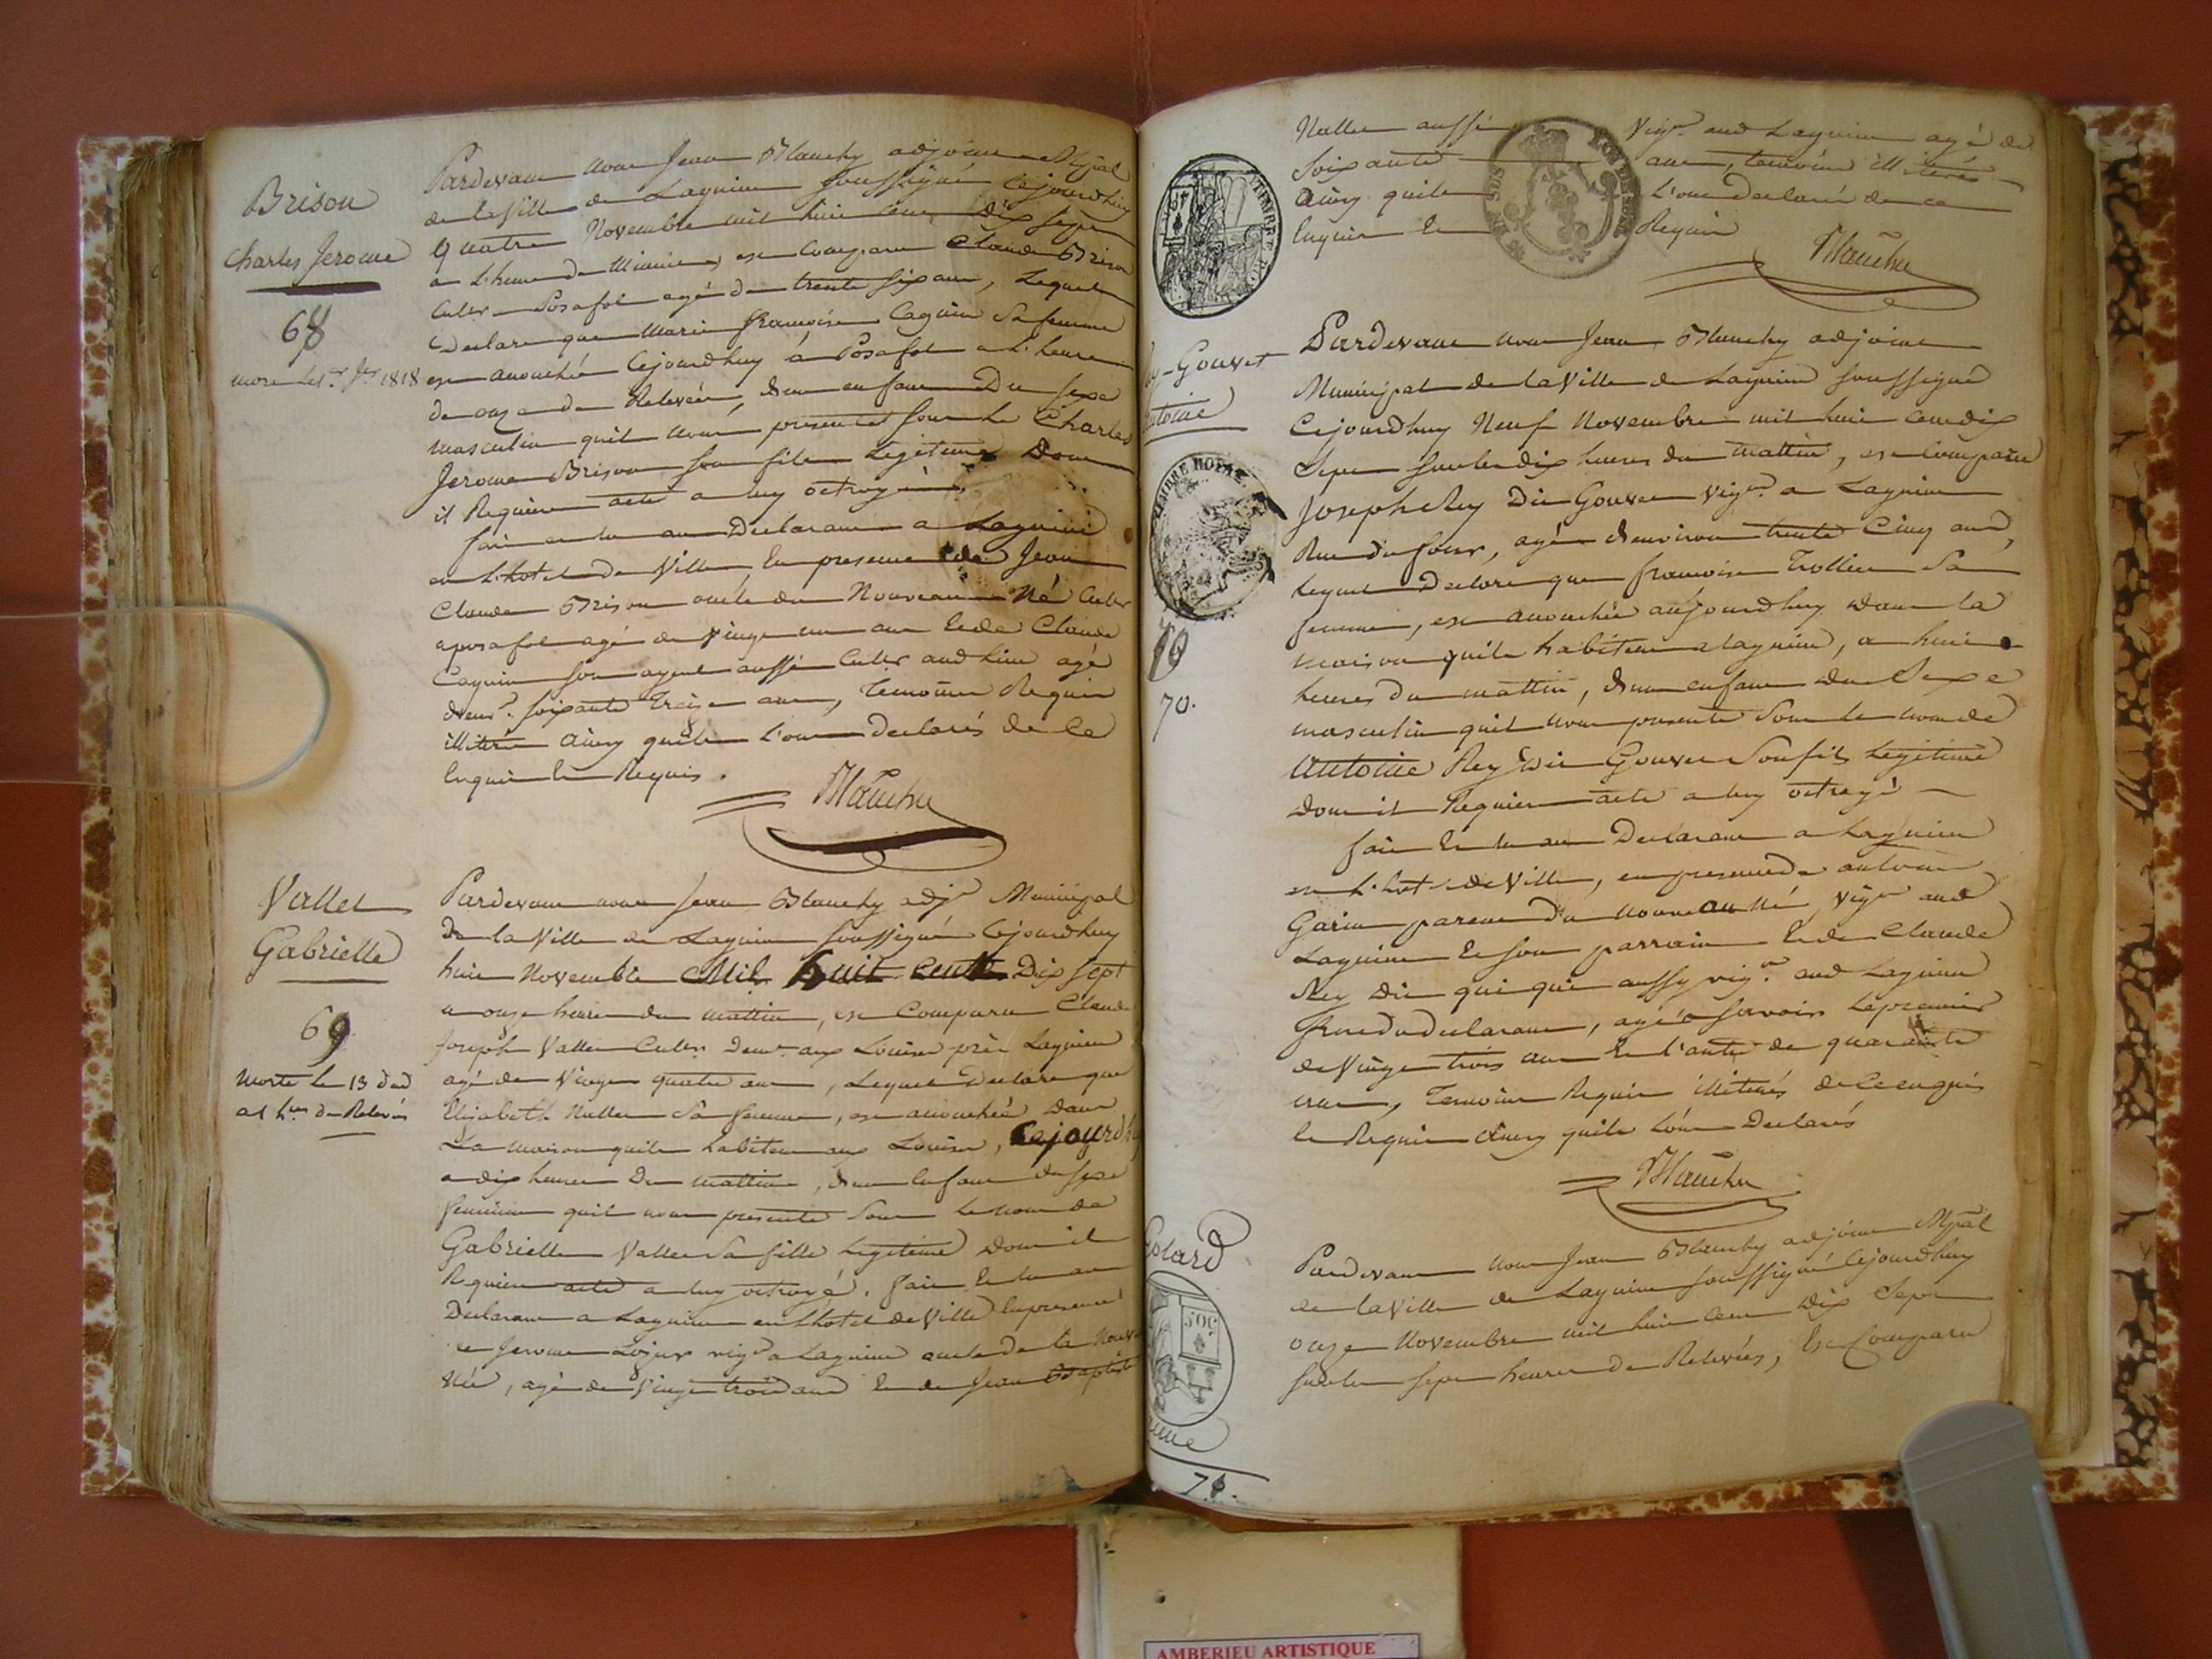 Brison
Charles Jerome
68
1818
Pardevant nous Jean Blanchy adjoint Mpal
de la Ville de Lagnieu soussigné cejourdhuy
Quatre Novembre mil huit cent dix sept
a L'heure de est comparu Claude Brison
Cultr a Posafol agé de trente six ans, Lequel
Declare que Marie françoise Caguin Sa femme
est accouchée Cejourdhuy á Posafol a L'heure
de onze de Relevée, d'un enfant Du sexe
masculin quil nous presente sous le Charles
Jerome Brison son fils Legitime Dont
il Requiert acte a luy octroyé
fait et lu au Declarant a Lagnieu
en L'hotel de Ville En presence de Jean
Claude Brison oncle du Nouveau Né Cultr
a posafol agé de Vingt un ans Et de Claude
Caguin son ayeul aussi Cultr aud lieu agé
d'envn. soixante Treize ans, Temoins Requis
illiteré Ainsy quils L'ont Declarés de Ce
Enquis Et Requis.
Blanchy
Vallet
Gabrielle
69
Morte le 13 dud
a 1 hres de Relevés
Pardevant nous Jean Blanchy adjt Municipal
De la Ville de Lagnieu soussigné Cejourdhuy
huit Novembre Mil huit cent Dix sept
a onze heures du mattin, est Comparu Claude
Joseph Vallet Cultr. Demt. aux Louises près Lagnieu
agé de Vingt quatre ans, Lequel Declare que
Elizabeth Nallet Sa femme, est accouchée Dans
La maison quils habitent aux Louises, Cejourdh
a dix heures Du mattin, d'un Enfant du sexe
feminin quil nous presente Sous le nom de
Gabrielle Vallet Sa fille Legitime Dont il
Requiert acte a luy octroyé. fait Et lu au
Declarant a Lagnieu en Lhotel de Ville En presence
de Jerome vigr a Lagnieu oncle de la Nouv
Née, agé de Vingt trois ans Et de Jean Baptiste
Nallet aussi Vigr aud Lagnieu agé de
Soixante ans, temoins illiterés
Ainsy quils L'ont Declaré de ce
Enquis Et Requis
Blanchy
TIMBRE
y-Gouvet
ntoine
TIMBRE ROYAL
70
70.
Pardevant nous Jean Blanchy adjoint
Municipal de la Ville de Lagnieu soussigné
Cejourdhuy Neuf Novembre mil huit cent dix
Sept sur les dix heures du mattin, est comparu
Joseph Rey Dit Gouvet vigr. a Lagnieu
Rue du four, agé d'environ trente Cinq ans,
Lequel Declare que françoise Trollier Sa
femme, est accouchée aujourdhuy dans la
maison quils habitent a Lagnieu, a huit
heures du mattin, d'un enfant du Sexe
masculin quil nous presente Sous le nom de
Antoine Rey dit Gouvet Son fils Legitime
Dont il Requiert acte a luy octroyé
fait Et lu au Declarant a Lagnieu
en L'hotel de Ville, en presence de antoine
Garin parent du nouveau Né, vigr aud
Lagnieu Et son parrain Et de Claude
Rey Dit aussy vigr. aud Lagnieu
frere du declarant, agés savoir Le premier
de Vingt trois ans Et l'autre de quarante
un, Temoins Requis illiterés de Ce enquis
Et Requis Ainsy quils Lont Declarés
Blanchy
olard
50C
7
Pardevant nous Jean Blanchy adjoint Mpal
de la Ville de Lagnieu soussigné Cejourdhuy
onze Novembre mil huit cent Dix Sept
sur les sept heures de Relevées, Est Comparu
AMBERIEU ARTISTIQUE